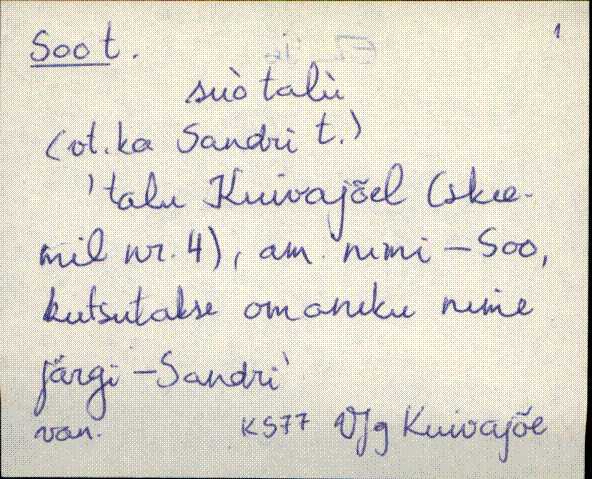 Soo t. 1
suò talù
(vt. ka Sandri t.)
'talu Kuivajõel (skee-
mil nr. 4), am. nimi – Soo,
kutsutakse omaniku nime
järgi – Sandri'
van. KS77 VJg Kuivajõe